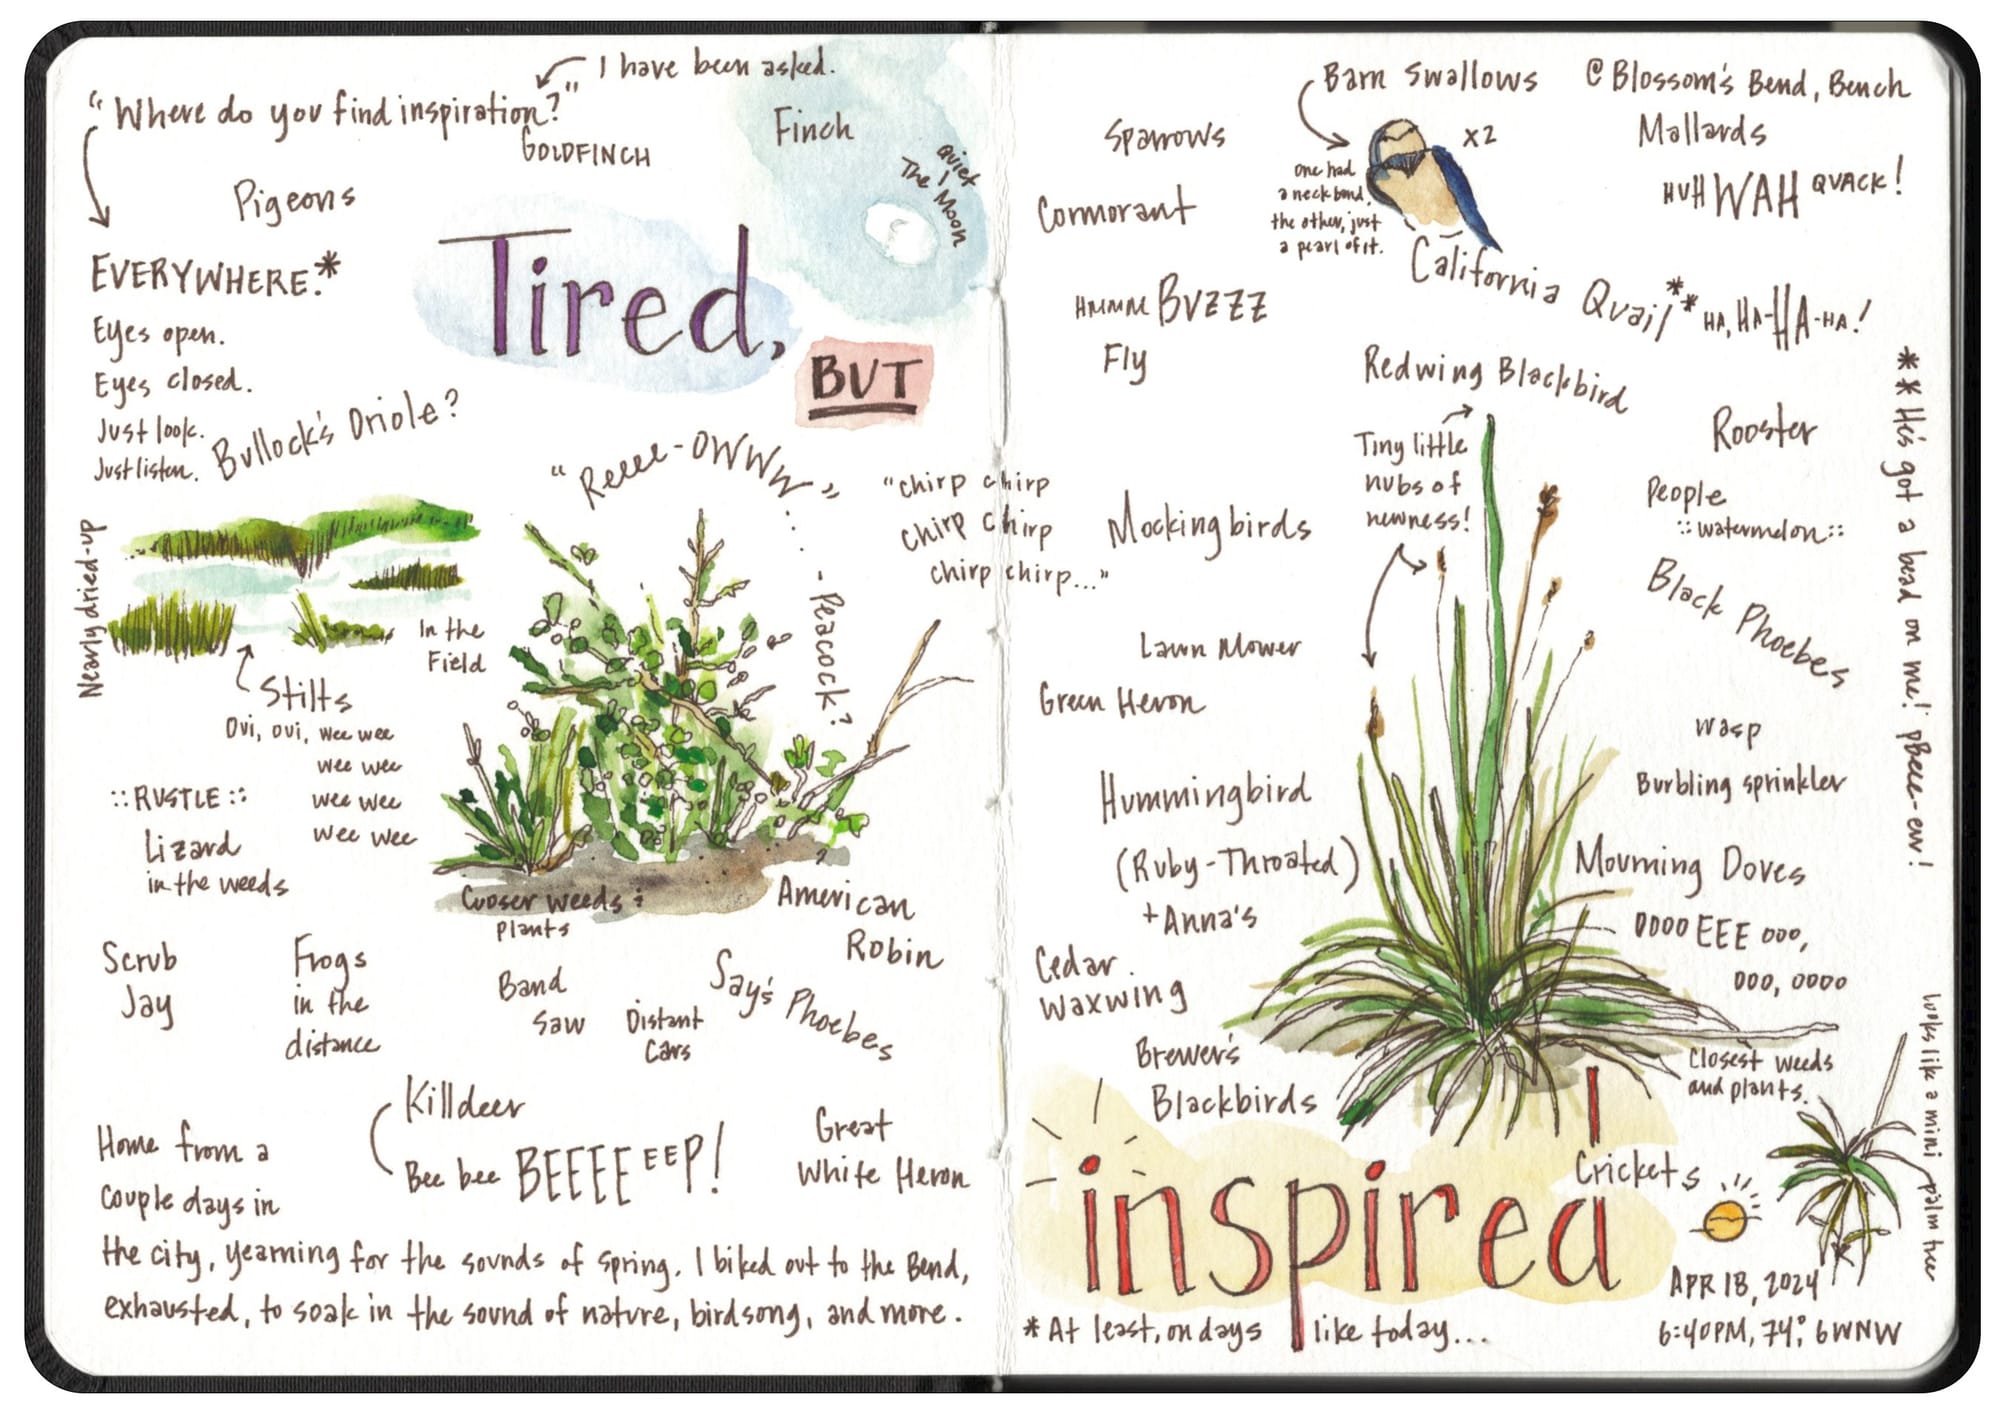 I have been asked.
"Where do you find inspiration?"
GOLDFINCH
Finch
Quiet
The Moon
Pigeons
EVERYWHERE.*
Eyes open.
Eyes closed.
Just look.
Just listen.
Tired,
BUT
Bullock's Oriole?
"Reeee-OWWW"...
-Peacock?
"chirp chirp
chirp chirp
chirp chirp..."
Nearly dried-up
In the
Field
Stilts
Oui, oui, wee wee
wee wee
wee wee
wee wee
::RUSTLE::
Lizard
in the weeds
Closer weeds &
plants
American
Robin
Scrub
Jay
Frogs
in the
distance
Band
Saw
Distant
Cars
Say's Phoebes
Killdeer
Bee bee BEEEE EEP!
Great
White Heron
Home from a
couple days in
the city, yearning for the sounds of spring. I biked out to the Bend,
exhausted, to soak in the sound of nature, birdsong, and more.
Barn Swallows
x2
one had
a neck band,
the other, just
a pearl of it.
@ Blossom's Bend, Bench
Sparrows
Mallards
HUH WAH QUACK!
Cormorant
California Quail** HA, HA-HA-HA!
**He's got a bead on me! pBeee-ew!
HMMMM BUZZZ
Fly
Redwing Blackbird
Tiny little
nubs of
newness!
Rooster
People
::watermelon::
Mockingbirds
Black Phoebes
Lawn Mower
Green Heron
Wasp
Burbling sprinkler
Hummingbird
(Ruby-Throated)
+Anna's
Mourning Doves
OOOO EEE OOO,
OOO, OOOO
Cedar
Waxwing
Brewer's
Blackbirds
Closest weeds
and plants.
looks like a mini palm tree
inspired
Crickets
APR 18, 2024
6:40PM, 74°, 6WNW
*At least, on days like today...